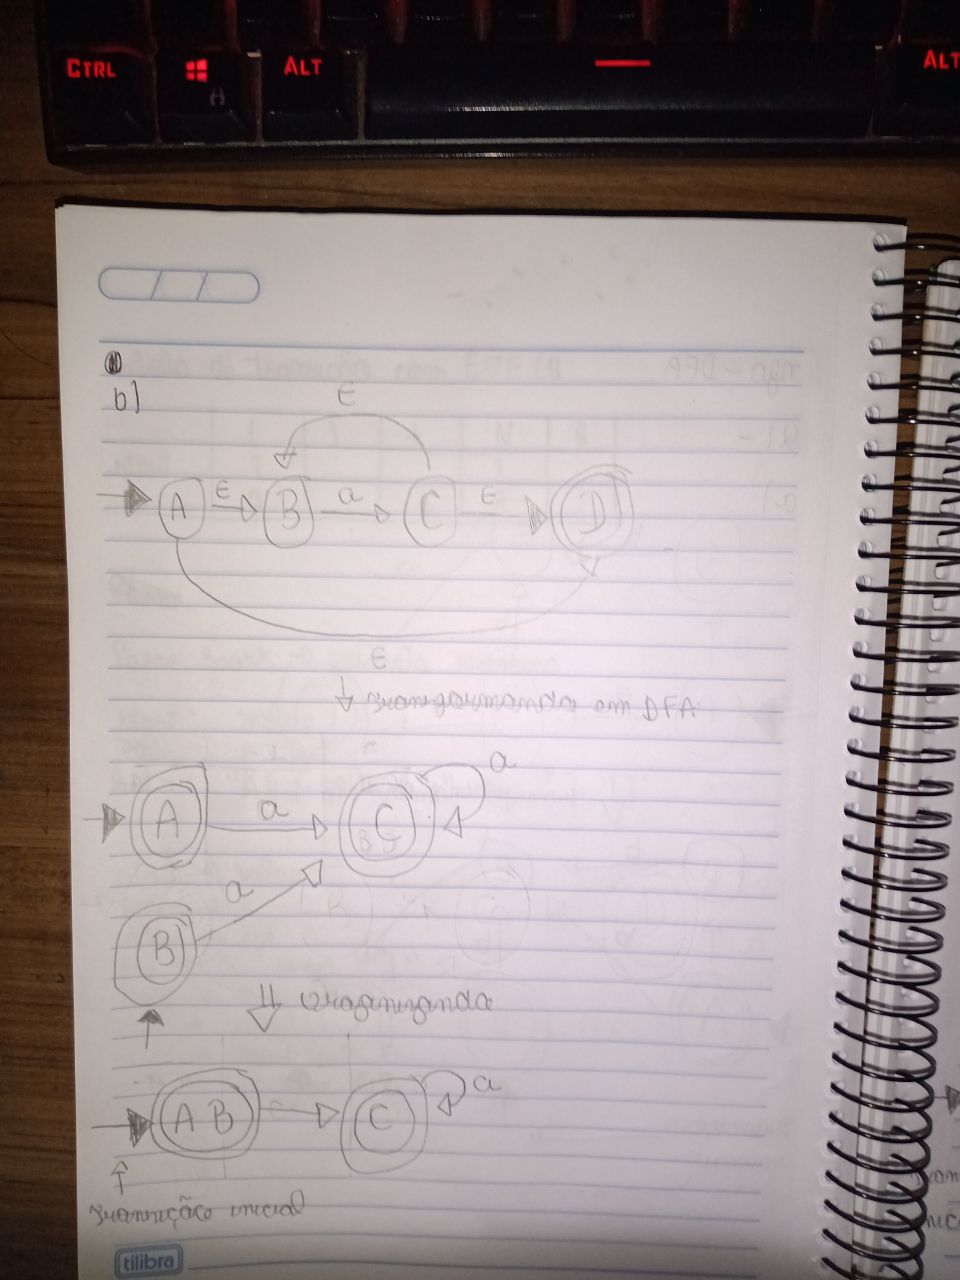 CTRL ALT ALT
b)
ε
A ε B a C ε D
ε
transformando em DFA
A a C a
B a
organizando
A B C a
transição inicial
tilibra